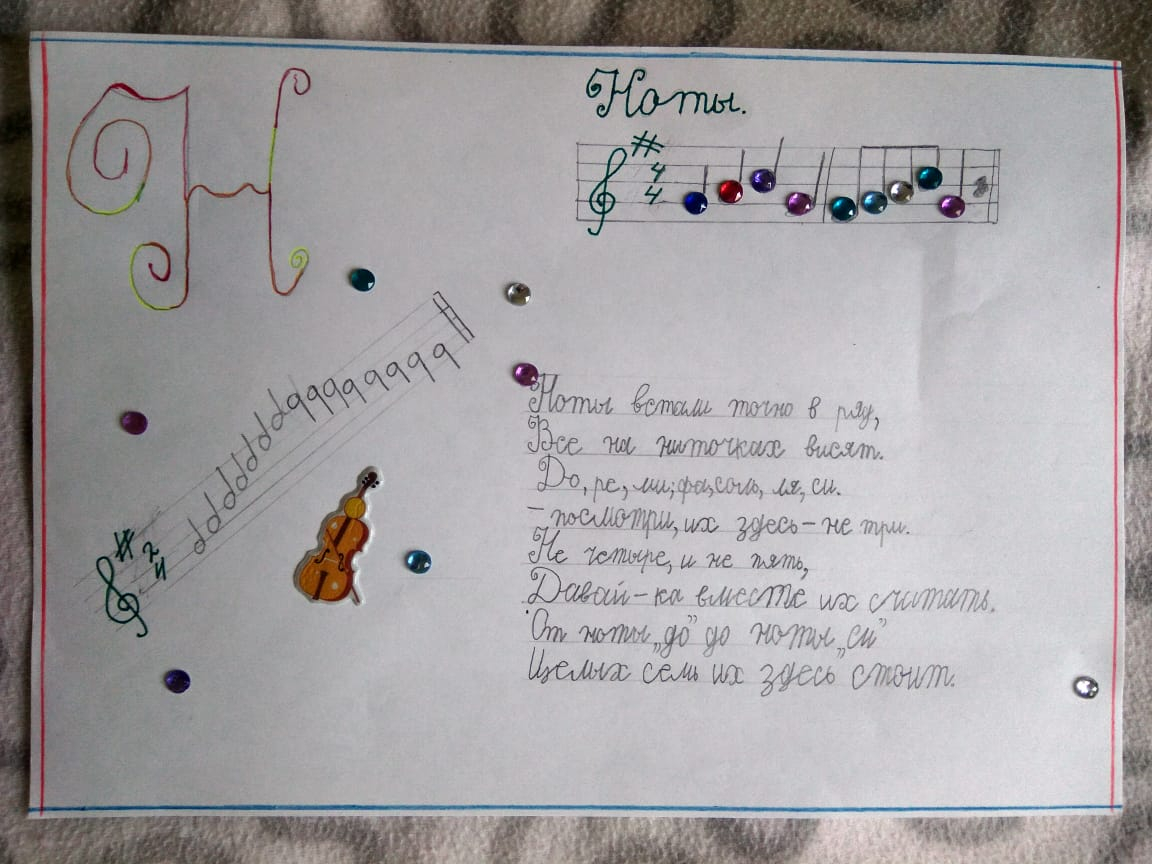 Н
Ноты.
4
4
2
4
Ноты встали точно в ряд,
Все на ниточках висят.
До, ре, ми, фа, соль, ля, си.
– посмотри, их здесь – не три.
Не четыре, и не пять,
Давай-ка вместе их считать.
От ноты „до” до ноты „си”
Целых семь их здесь стоит.